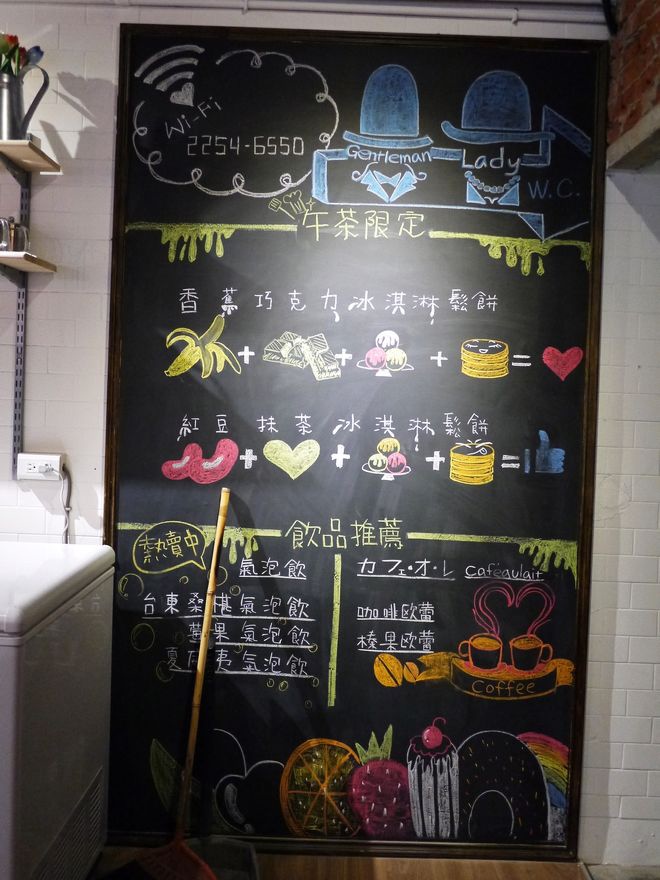 Wi-Fi
2254-6550
Gentleman
Lady
W.C.
午茶限定
香蕉巧克力冰淇淋鬆餅
紅豆抹茶冰淇淋鬆餅
飲品推薦
熱賣中
氣泡飲
台東桑椹氣泡飲
莓果氣泡飲
夏 夷氣泡飲
カフェ・オ・レ caféaulait
咖啡歐蕾
榛果歐蕾
Coffee